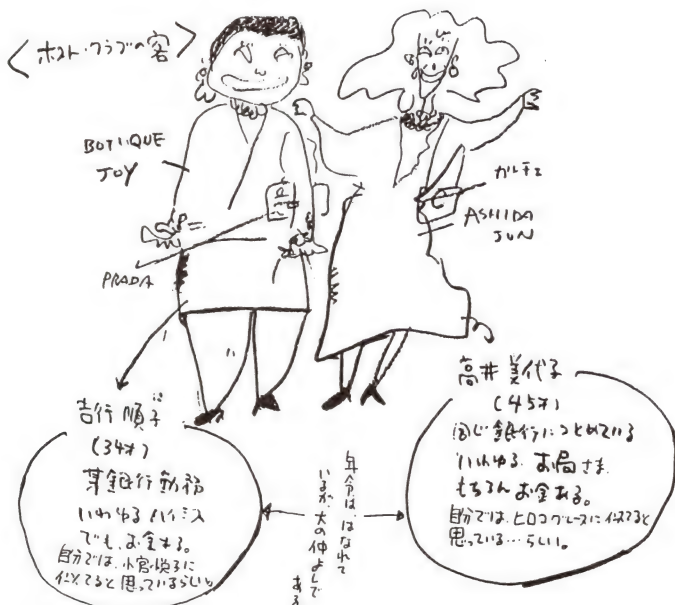 <ホスト・クラブの客>
BOTIQUE
JOY
PRADA
カルチェ
ASHIDA
JUN
吉行 順子
(34才)
某銀行勤務
いわゆるハイミス
でも、お金ある。
自分では、小宮悦子に
似てると思っているらしい。
年令は、はなれて
いるが、大の仲よしで
ある
高井 美代子
(45才)
同じ銀行につとめている
いわゆる お局さま
もちろんお金ある。
自分では、ヒロコグレースに似てると
思っている…らしい。